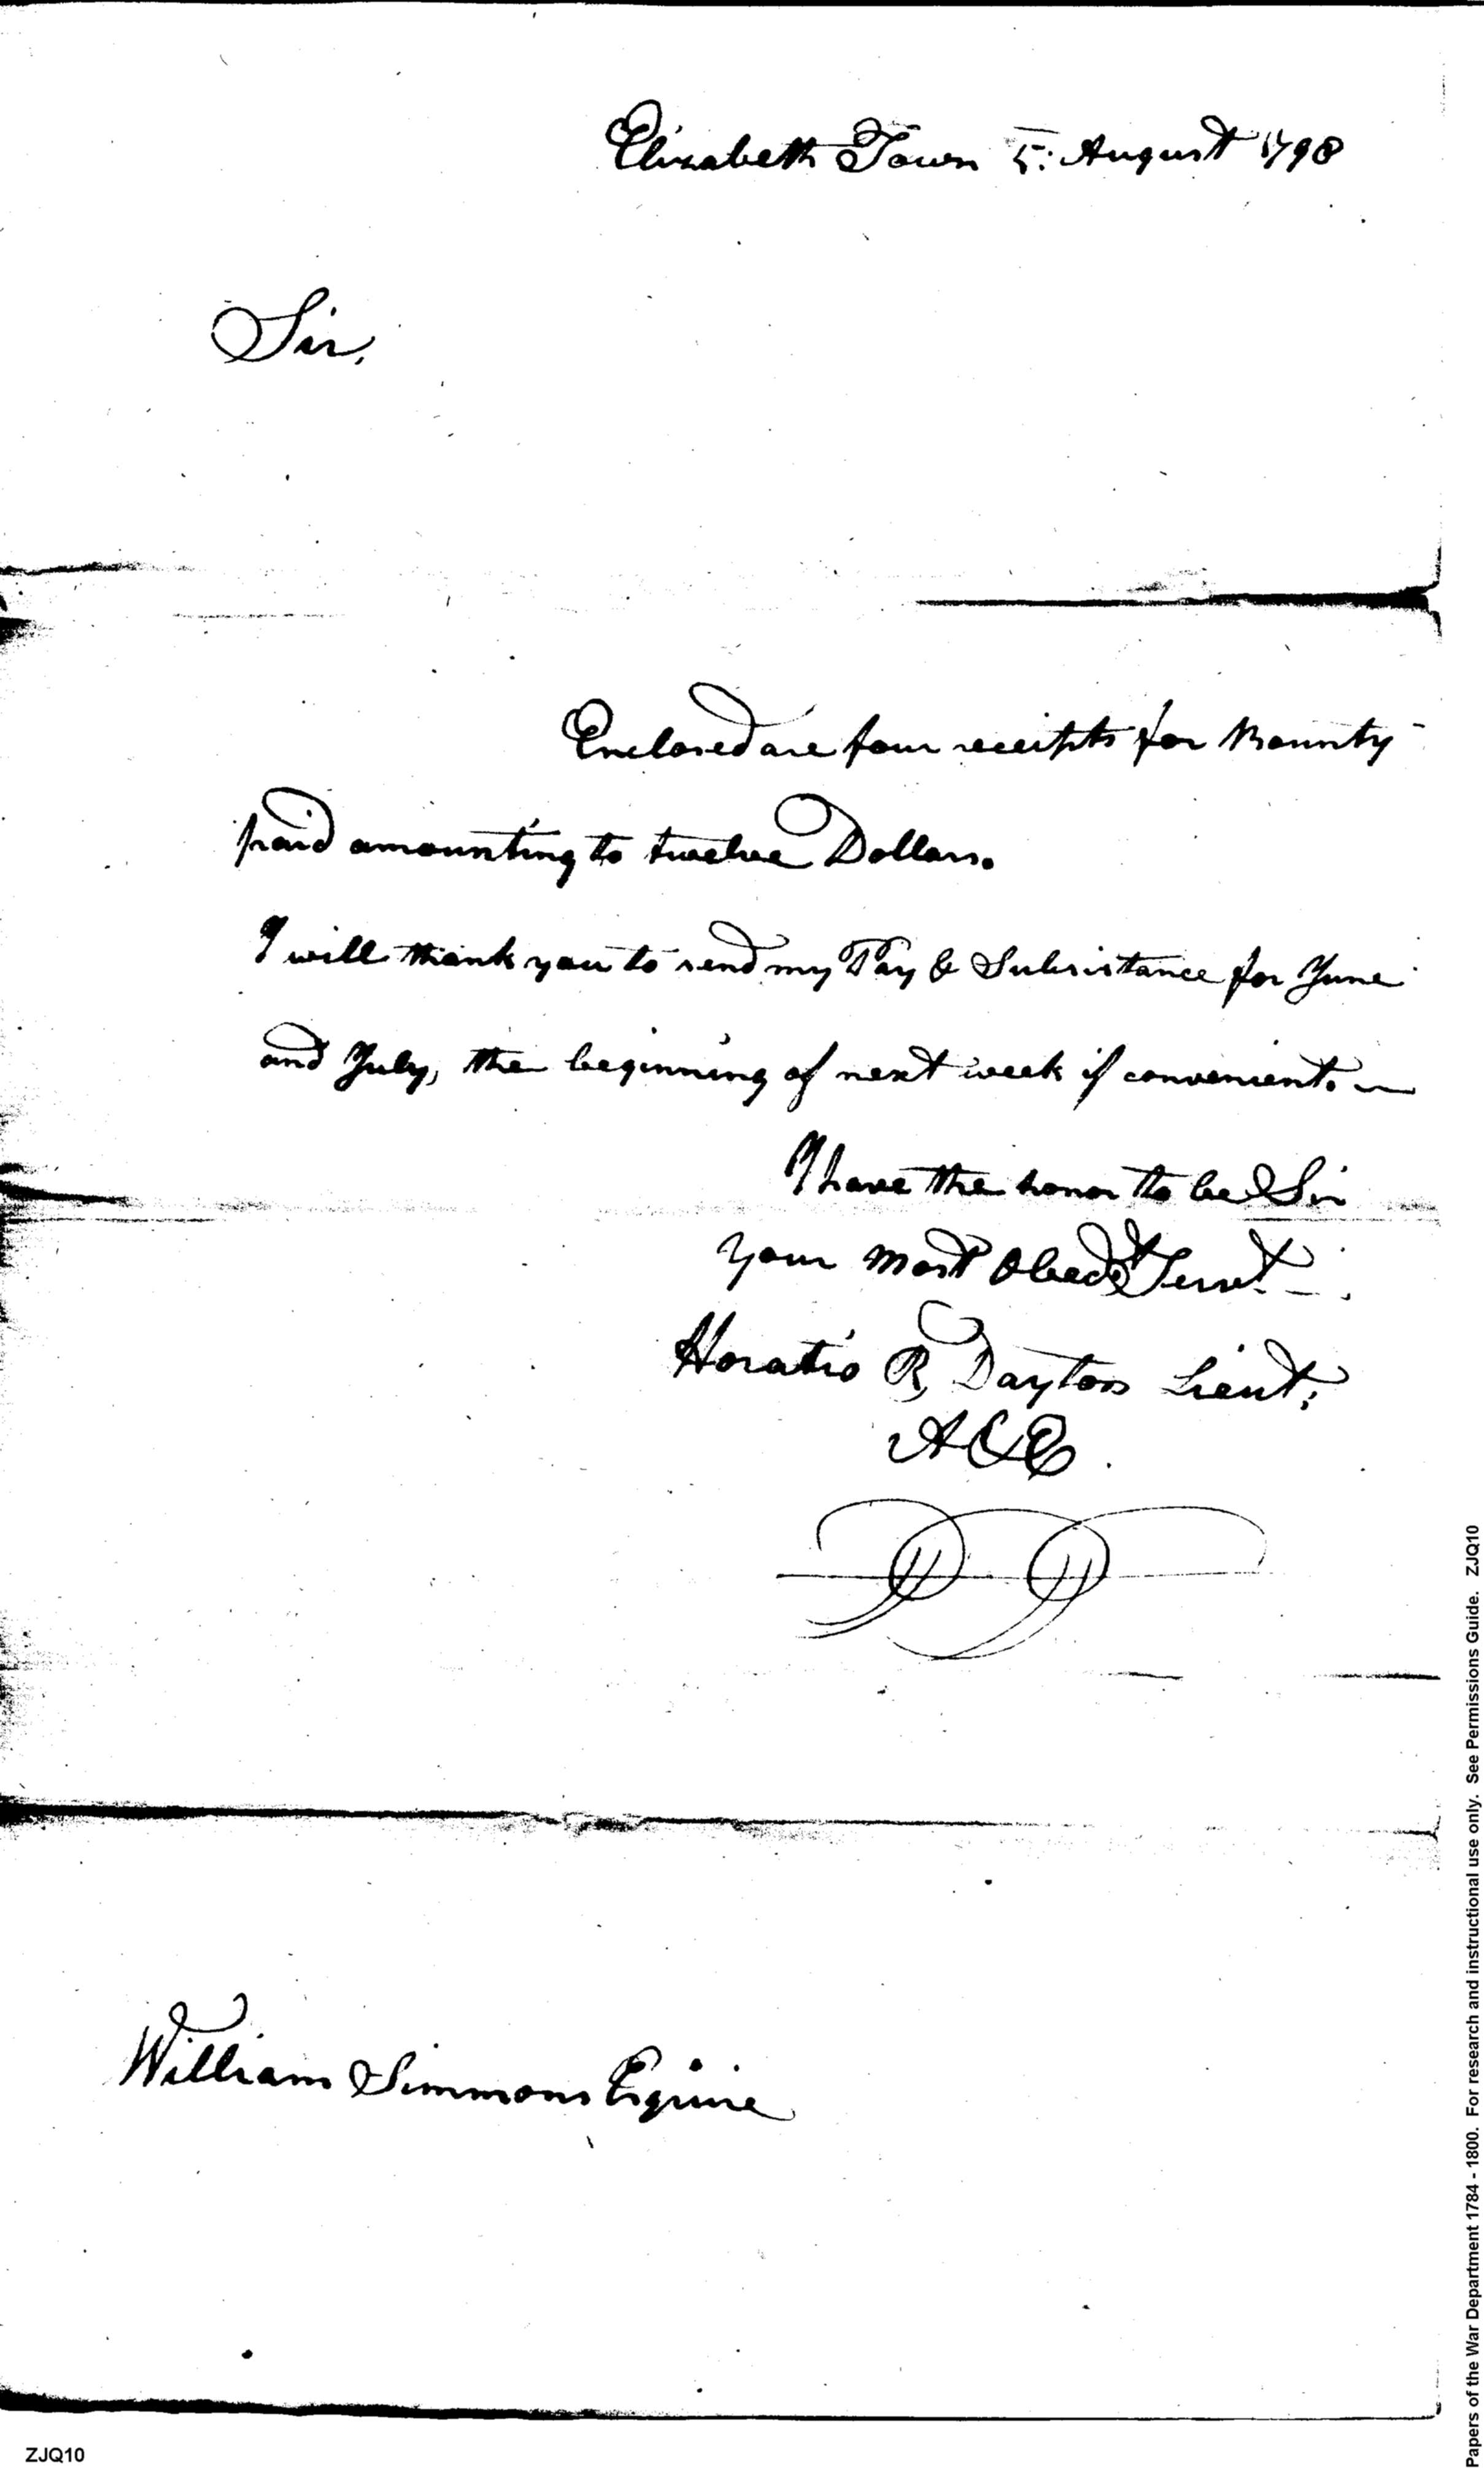 Elizabeth Town 5: August 1798
Sir,
Enclosed are four receipts for Bounty
paid amounting to twelve Dollars.
I will thank you to send my Pay & Subsistance for June
and July, the beginning of next week if convenient.
I have the honor to be Sir
Your Most Obedt Servt
Horatio R Dayton Lieut:
A&E
William Simmons Esquire
ZJQ10
Papers of the War Department 1784 - 1800. For research and instructional use only. See Permissions Guide. ZJQ10